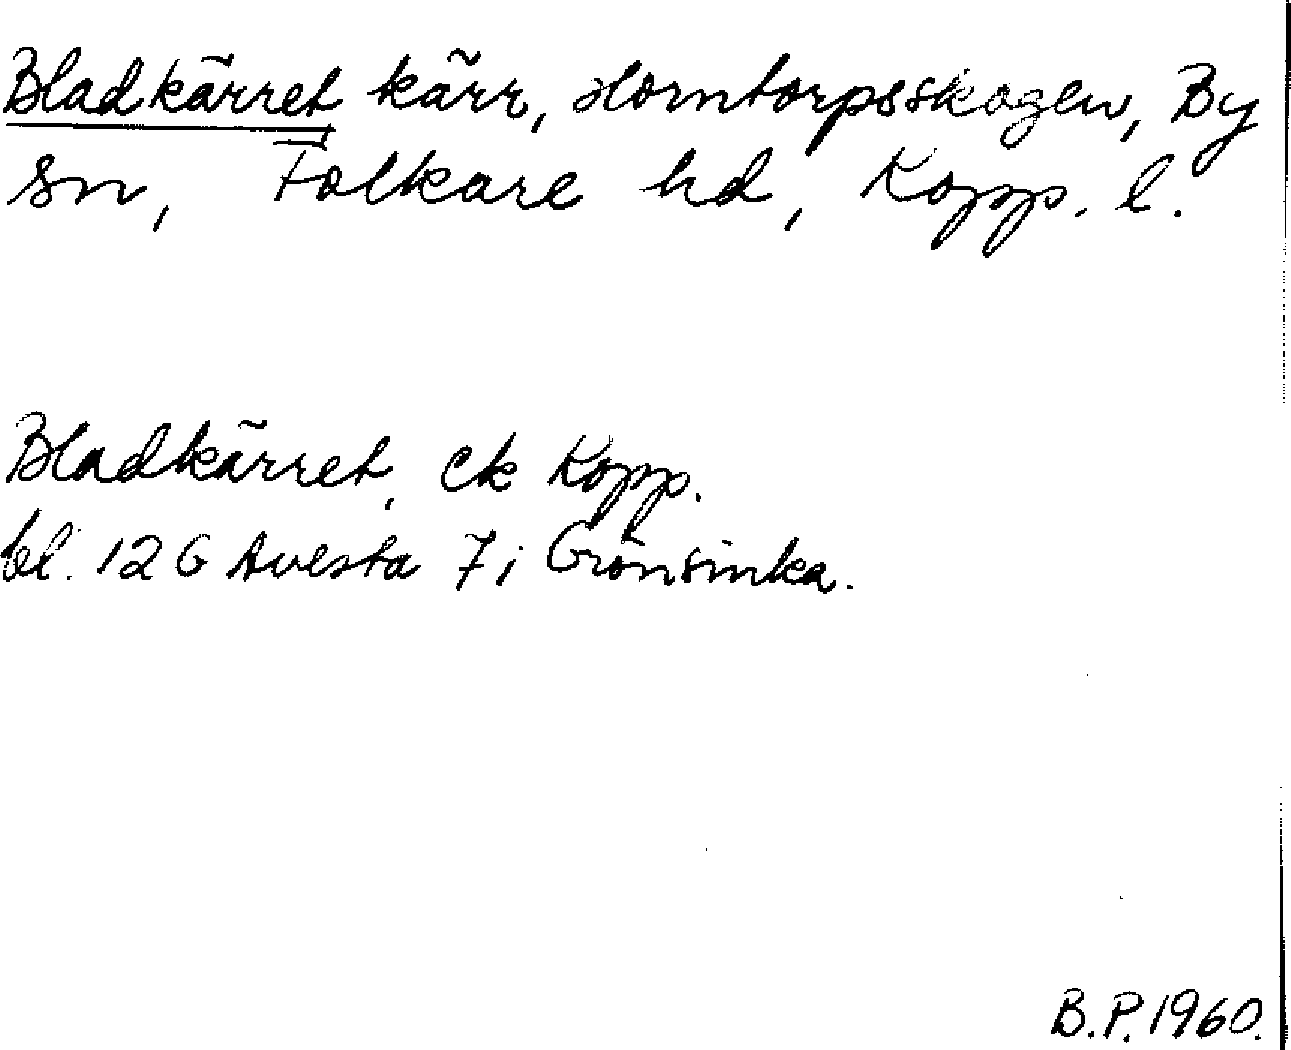 Bladkärret kärr, Horntorpsskogen, By
sn, Folkare hd, Kopp. l.
Bladkärret, ek Kopp.
bl. 12 G Avesta 7 i Grönsinka.
B.P. 1960.